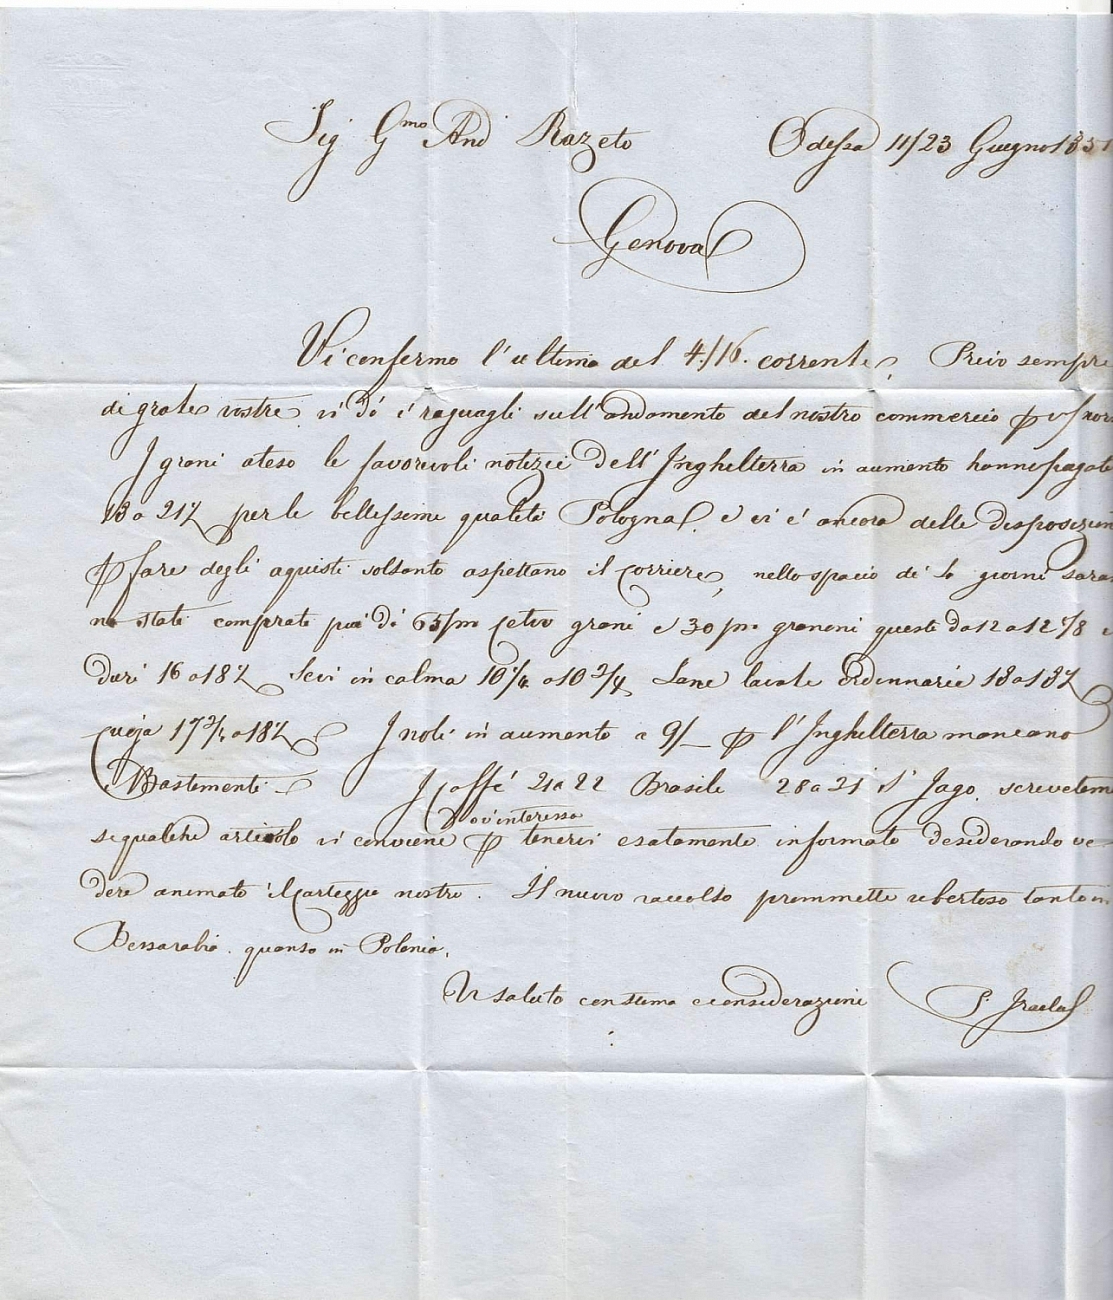 Sig G.mo And Razeto Odessa 11/23 Giugno 1851
Genova
Vi confermo l'ultima del 4/16. corrente, Privo sempre
di grate vostre vi dò i raguagli sull'andamento del nostro commercio
I grani ateso le favorevoli notizie Dell'Inghilterra in aumento hanno pagato
18 a 21 per le bellissime qualità Pologna e vi è ancora delle disposizion
p fare degli aquisti soltanto aspettano il Corriere, nello spacio di giorni sara
no state comprate più di 65/m Cetw grani e 30/m granoni questi da 12 a 12 /8
duri 16 a 18 Sevi in calma 10 1/4 a 10 3/4 Lane lavate Ordinnarie 13
17 3/4 a 18 I noli in aumento a 9/_ p l'Inghilterra mancano
Bastementi I Caffé 21 a 22 Brasile 28 a S' Jago. scrivetemi
v'interessa
se qualche articolo vi conviene p tenervi esatamente informato desiderando ve-
dere animato il Carteggio nostro. Il nuovo raccolto prommette ubertoso tanto in
Bessarabia. quanto in Polonia.
Vi saluto con stima e considerazione